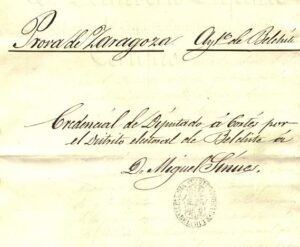 Prov.a de Zaragoza Ay.to de Belchite
Credencial de Diputado a Cortés por
el Distrito electoral de Belchite á
D. Miguel Sinues